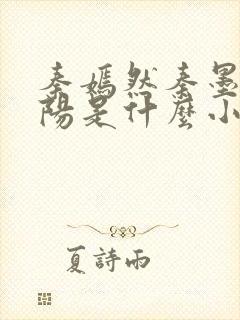 秦嫣然秦墨
陽是什麼小
夏詩雨